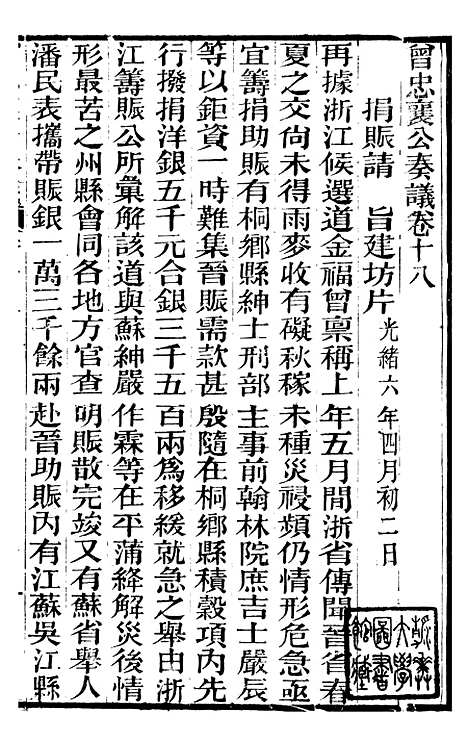 曾忠襄公奏議卷十八
捐賑請　旨建坊片光緒六年四月初二日
再據浙江候選道金福曾稟稱上年五月間浙省傳聞晉省春
夏之交尙未得雨麥收有礙秋稼未種災祲頻仍情形危急亟
宜籌捐助賑有桐鄉縣紳士刑部主事前翰林院庶吉士嚴辰
等以鉅資一時難集晉賑需款甚殷隨在桐鄉縣積穀項內先
行撥捐洋銀五千元合銀三千五百兩爲移緩就急之舉由浙
江籌賑公所彙解該道與蘇紳嚴作霖等在平蒲絳解災後情
形最苦之州縣會同各地方官查明賑散完竣又有蘇省舉人
潘民表攜帶賑銀一萬三千餘兩赴晉助賑內有江蘇吳江縣
大學
圖書
館藏